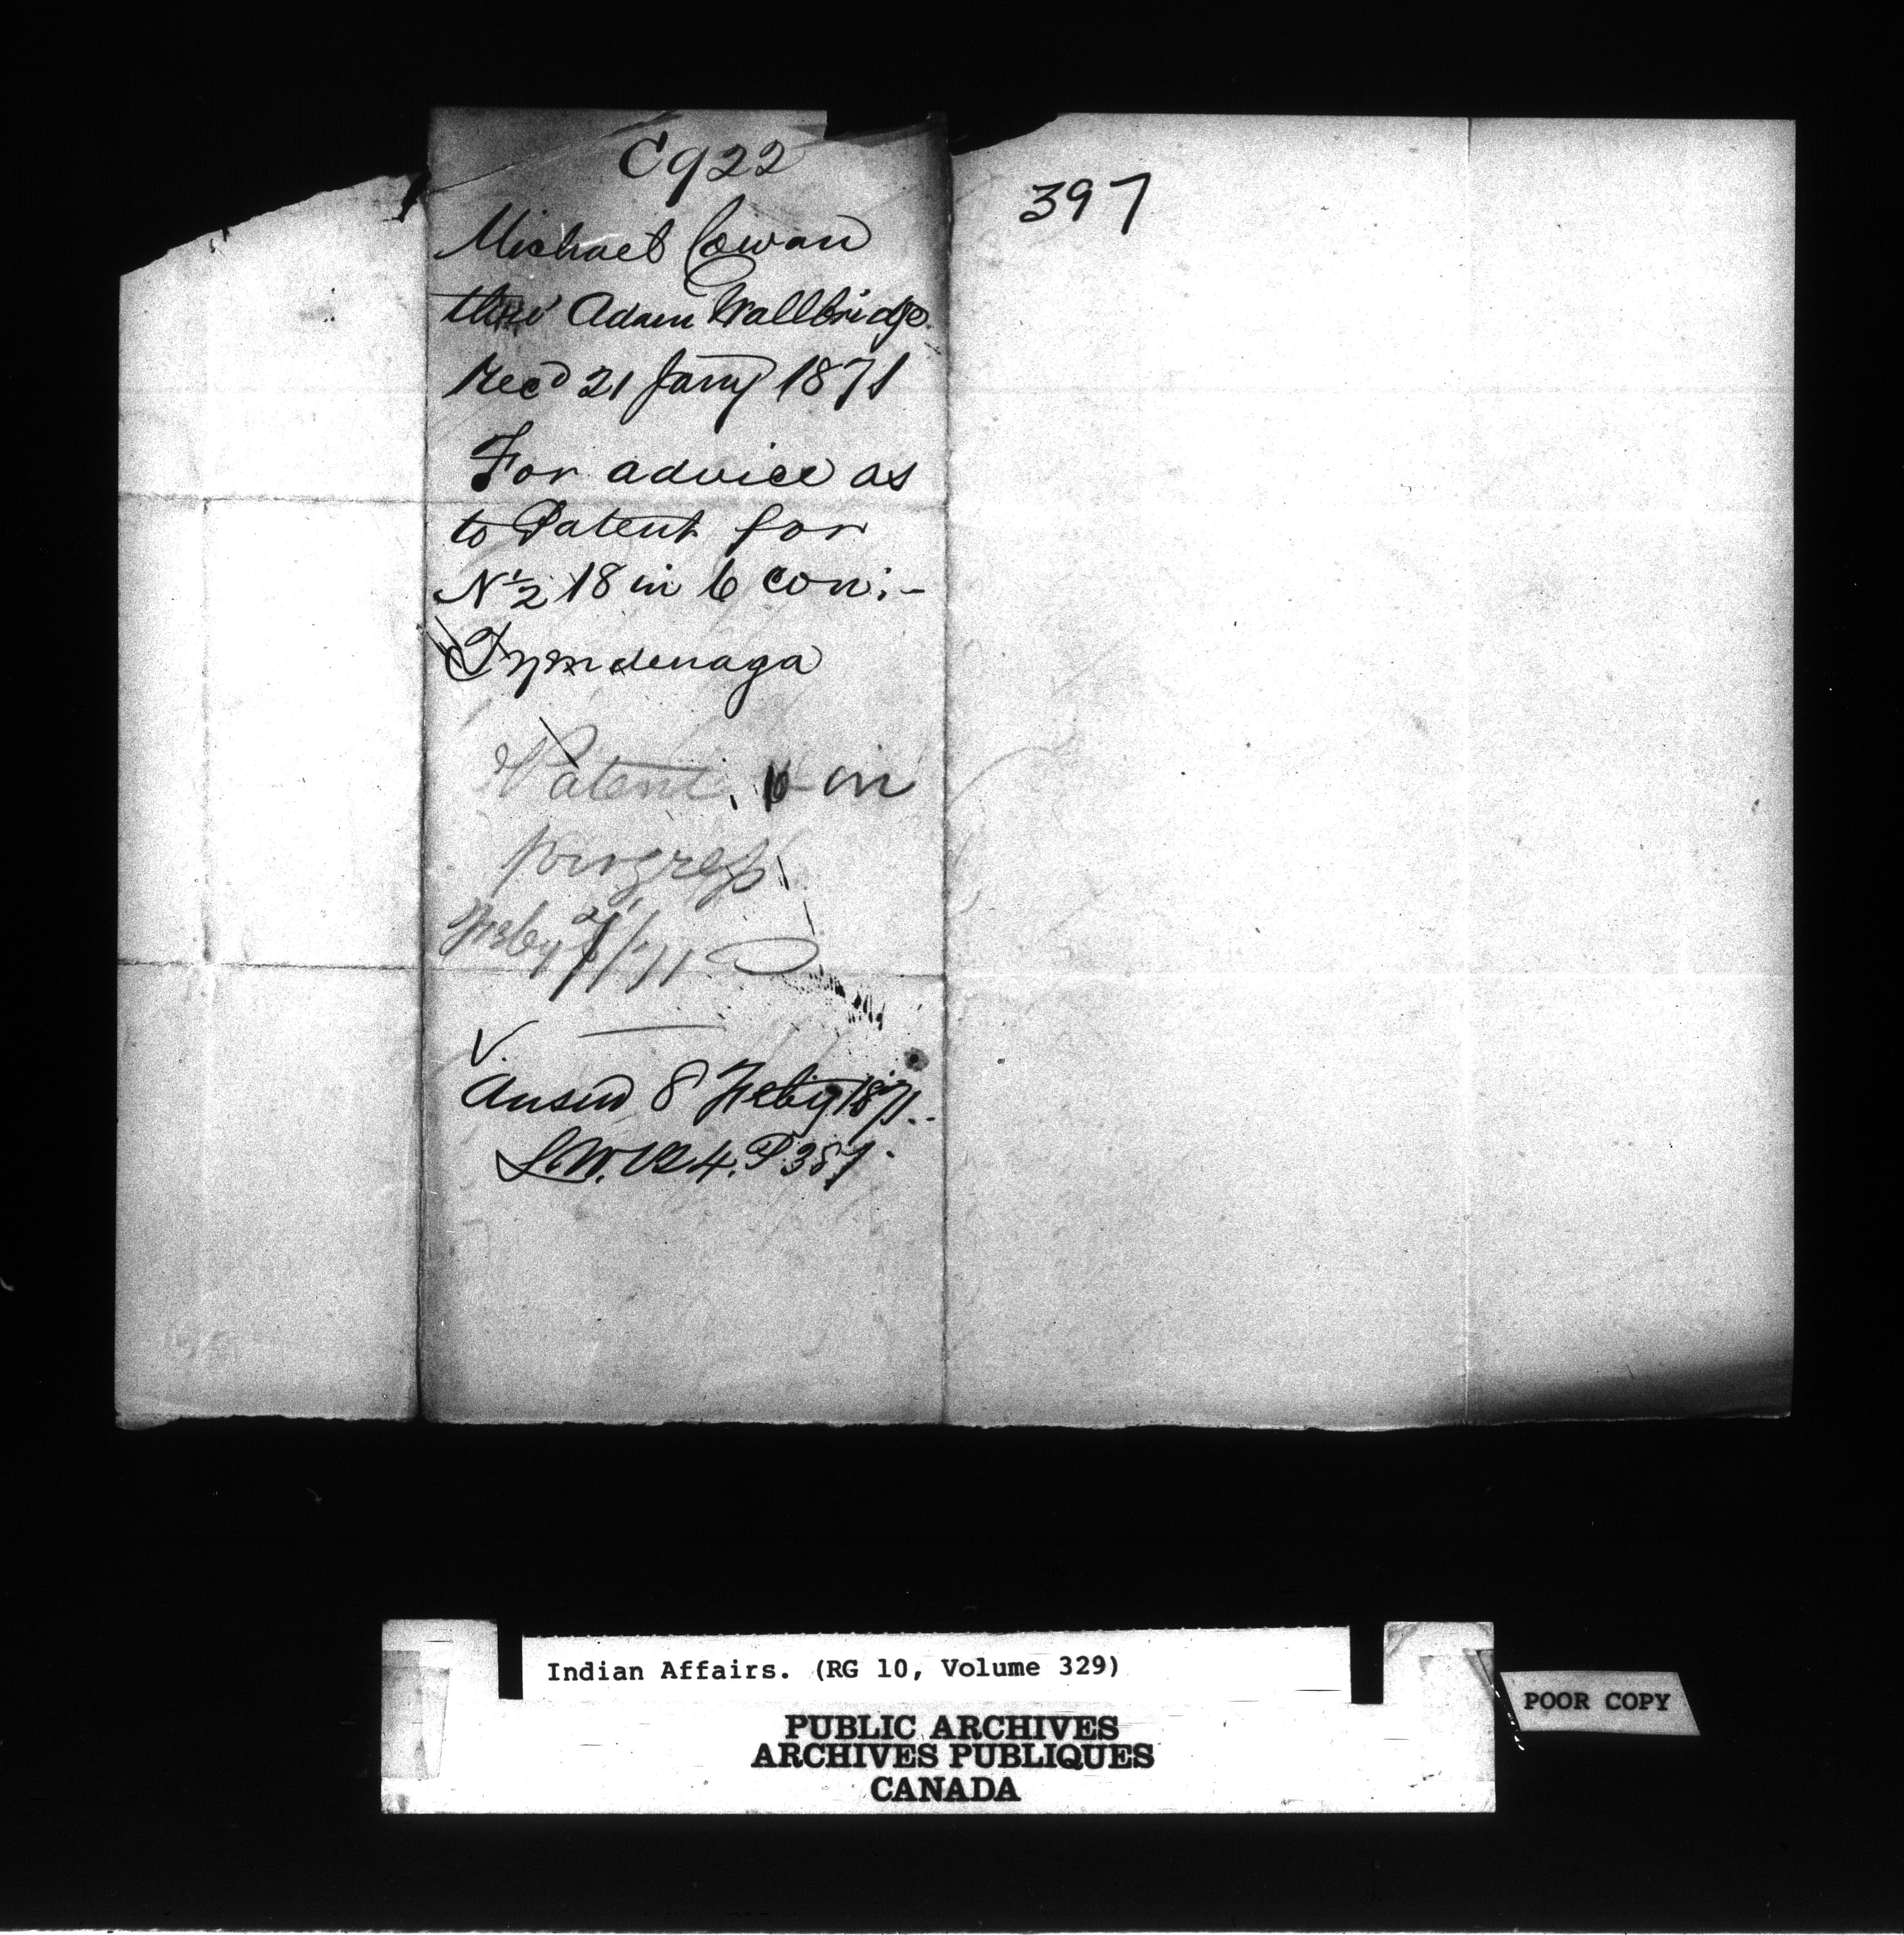 C922
397
Michael Cowan
thro' Adam Wallbridge
Recd 21 Jany 1871
For advice as
to Patent for
N ½ 18 in 6 con:-
Tyendenaga
Patent is in
progress
Feby 7/71
Ansd 8 Feby 1871.
L.W. 124. P 387.
Indian Affairs. (RG 10, Volume 329)
POOR COPY
PUBLIC ARCHIVES
ARCHIVES PUBLIQUES
CANADA